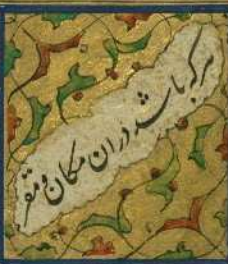 هر که باشد در ان مکان و مقر